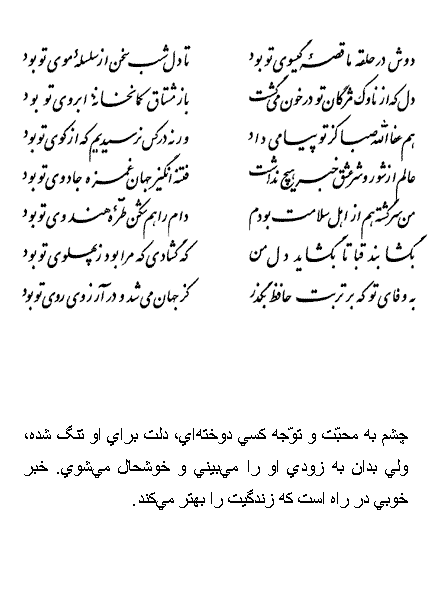 دوش در حلقه ما قصه گیسوی تو بود تا دل شب سخن از سلسله موی تو بود
دل که از ناوک مژگان تو در خون می‌گشت باز مشتاق کمانخانه ابروی تو بود
هم عفاالله صبا کز تو پیامی داد ورنه در کس نرسیدیم که از کوی تو بود
عالم از شور و شر عشق خبر هیچ نداشت فتنه انگیز جهان غمزه جادوی تو بود
من سرگشته هم از اهل سلامت بودم دام راهم شکن طره هندوی تو بود
بگشا بند قبا تا بگشاید دل من که گشادی که مرا بود ز پهلوی تو بود
به وفای تو که بر تربت حافظ بگذر کز جهان می‌شد و در آرزوی روی تو بود
چشم به محبّت و توّجه كسي دوخته‌اي، دلت براي او تنگ شده،
ولي بدان به زودي او را مي‌بيني و خوشحال مي‌شوي. خبر
خوبي در راه است كه زندگيت را بهتر مي‌كند.